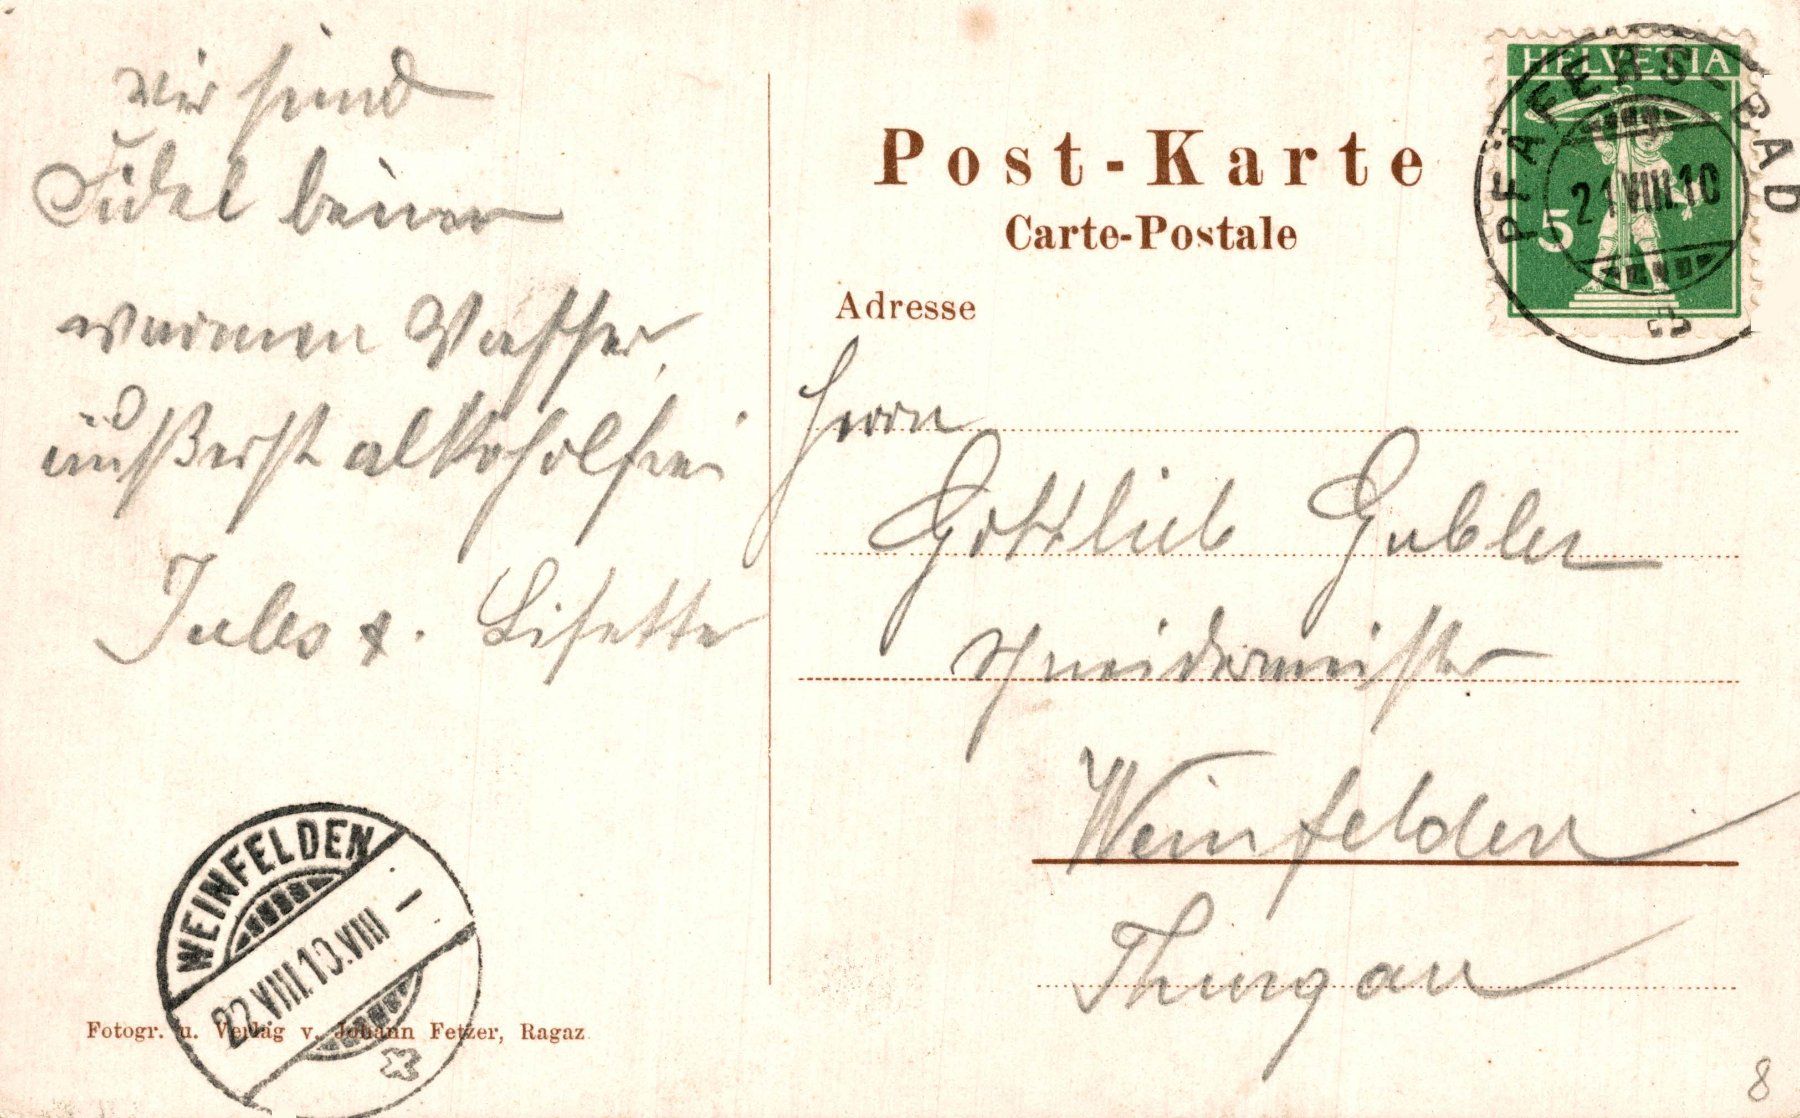 wir sind
Fidel beim
warmen Wasser
äußerst alkoholfrei
Jules &. Lisette
Post-Karte
Carte-Postale
Adresse
HELVETIA
5
PFÄFERS-BAD
21.VIII.10
Herrn
Gottlieb Gubler
Schneidermeister
Weinfelden
Thurgau
WEINFELDEN
22.VIII.10.VIII–
Fotogr. u. Verlag v. Johann Fetzer, Ragaz
8